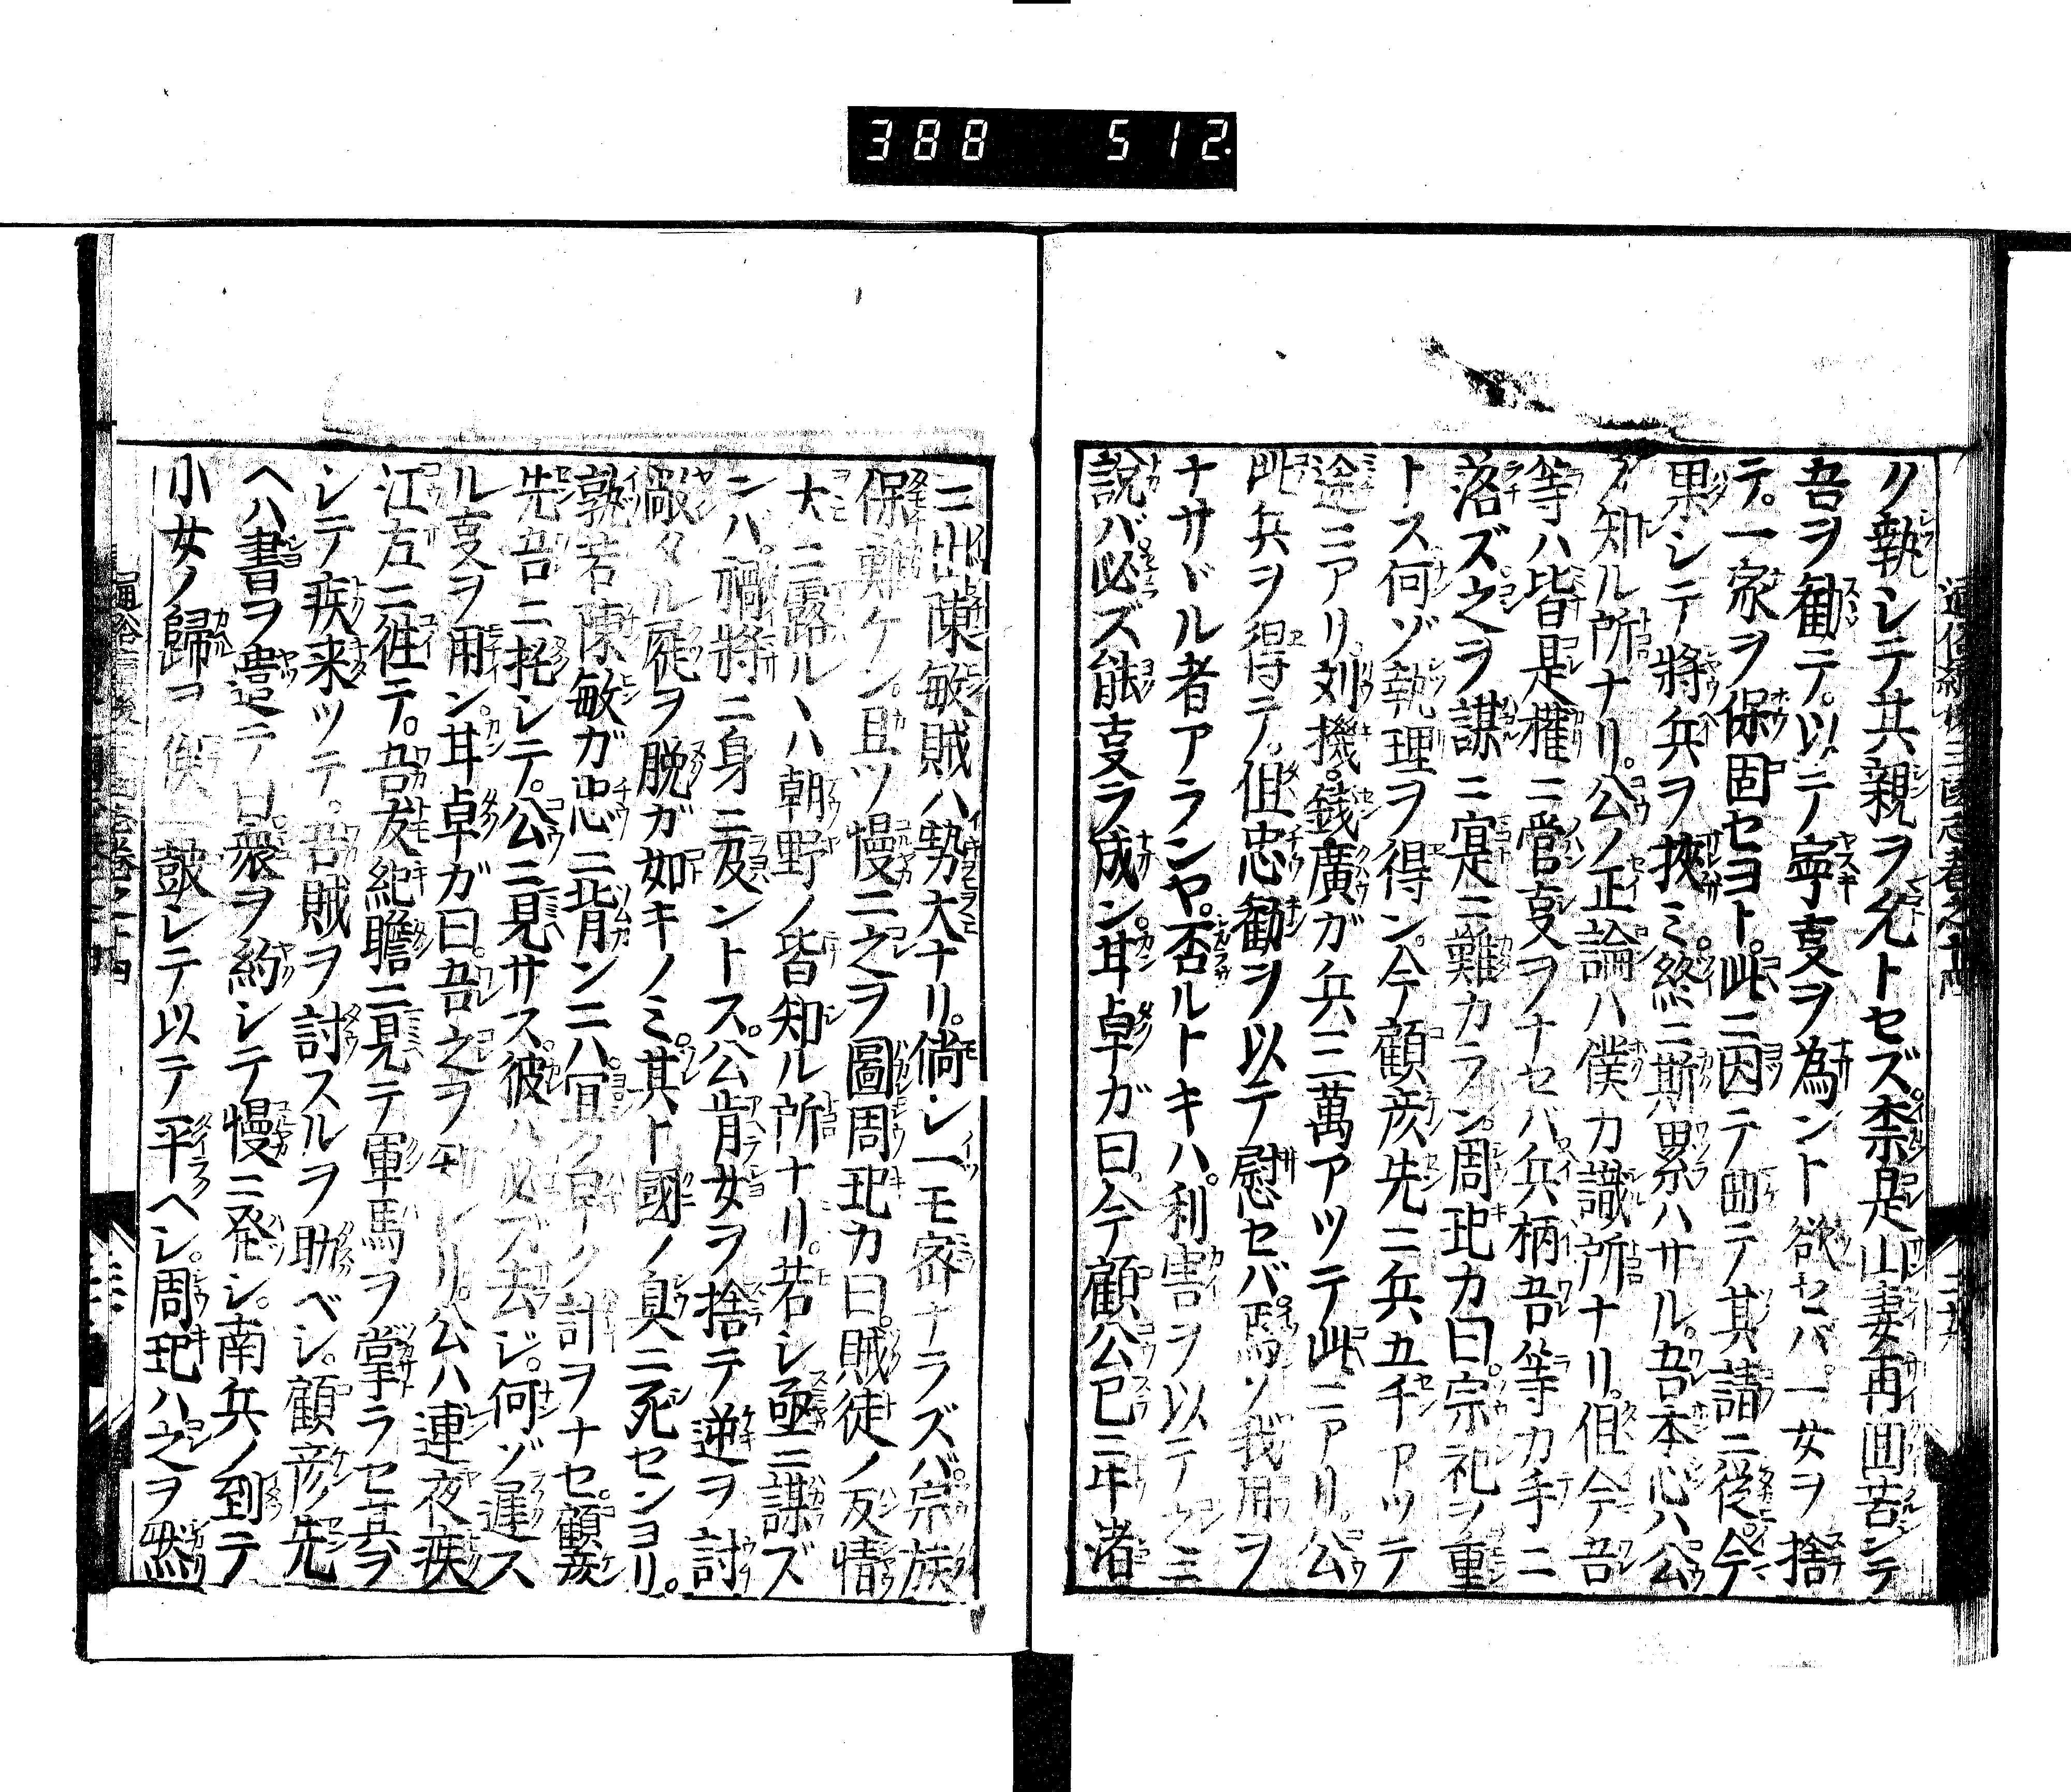 388 512
リ執シテ其親ヲ允トセズ柰是山妻再回苦シテ
吾ヲ勧テ以テ寧吏ヲ為ント欲セバ一女ヲ捨
テ一家ヲ保固セヨト此ニ因テ曲テ其請ニ従今
果シテ將兵ヲ挾ミ終ニ斯累ハサル吾本心ハ公
ノ知ル所ナリ公ノ正論ハ僕カ識所ナリ但今吾
等ハ皆是權ニ當吏ヲナセバ兵柄吾等カ手ニ
落ズ之ヲ謀ニ寔ニ難カラン周玘カ曰宗祀ヲ重
トス何ゾ執理ヲ得ン今顧彦先ニ兵五千アツテ
途ニアリ刘機錢廣ガ兵三萬アツテ此ニアリ公
此兵ヲ得テ但忠勧ヲ以テ慰セバ焉ソ我用ヲ
ナサヾル者アランヤ否ルトキハ利害ヲ以テ之ニ
說バ必ズ能吏ラ成ン耳卓ガ曰今顧公已ニ牛渚
ニ出陳敏賊ハ勢大ナリ倘シ一モ密ナラズバ宗族
保難ケン且ツ慢ニ之ヲ圖周玘カ曰賊徒ノ反情
大ニ露ルヽハ朝野ノ皆知ル所ナリ若シ亟ニ謀ズ
ンハ禍將ニ身ニ及ントス公肯女ヲ捨テ逆ヲ討
敵タル寇ヲ脱ガ如キノミ其ト國ノ臭ニ死センヨリ
孰若陳敏ガ忠ニ背ンニハ宜ク早ク計ヲナセ顧彦
先吾ニ托シテ公ニ見サス彼ハ必ズ去ジ何ゾ遲ス
ル吏ヲ用ン耳卓ガ曰吾之ヲ知レリ公ハ連夜疾
江左ニ往テ吾友紀瞻ニ見テ軍馬ヲ掌ラセ兵ヲ
シテ疾来ツテ吾賊ヲ討スルヲ助ベシ顧彦先
ヘハ書ヲ遣テ曰衆ヲ約シテ慢ニ発シ南兵ノ到テ
小女ノ歸ヲ俟一鼓シテ以テ平ヘシ周玘ハ之ヲ然